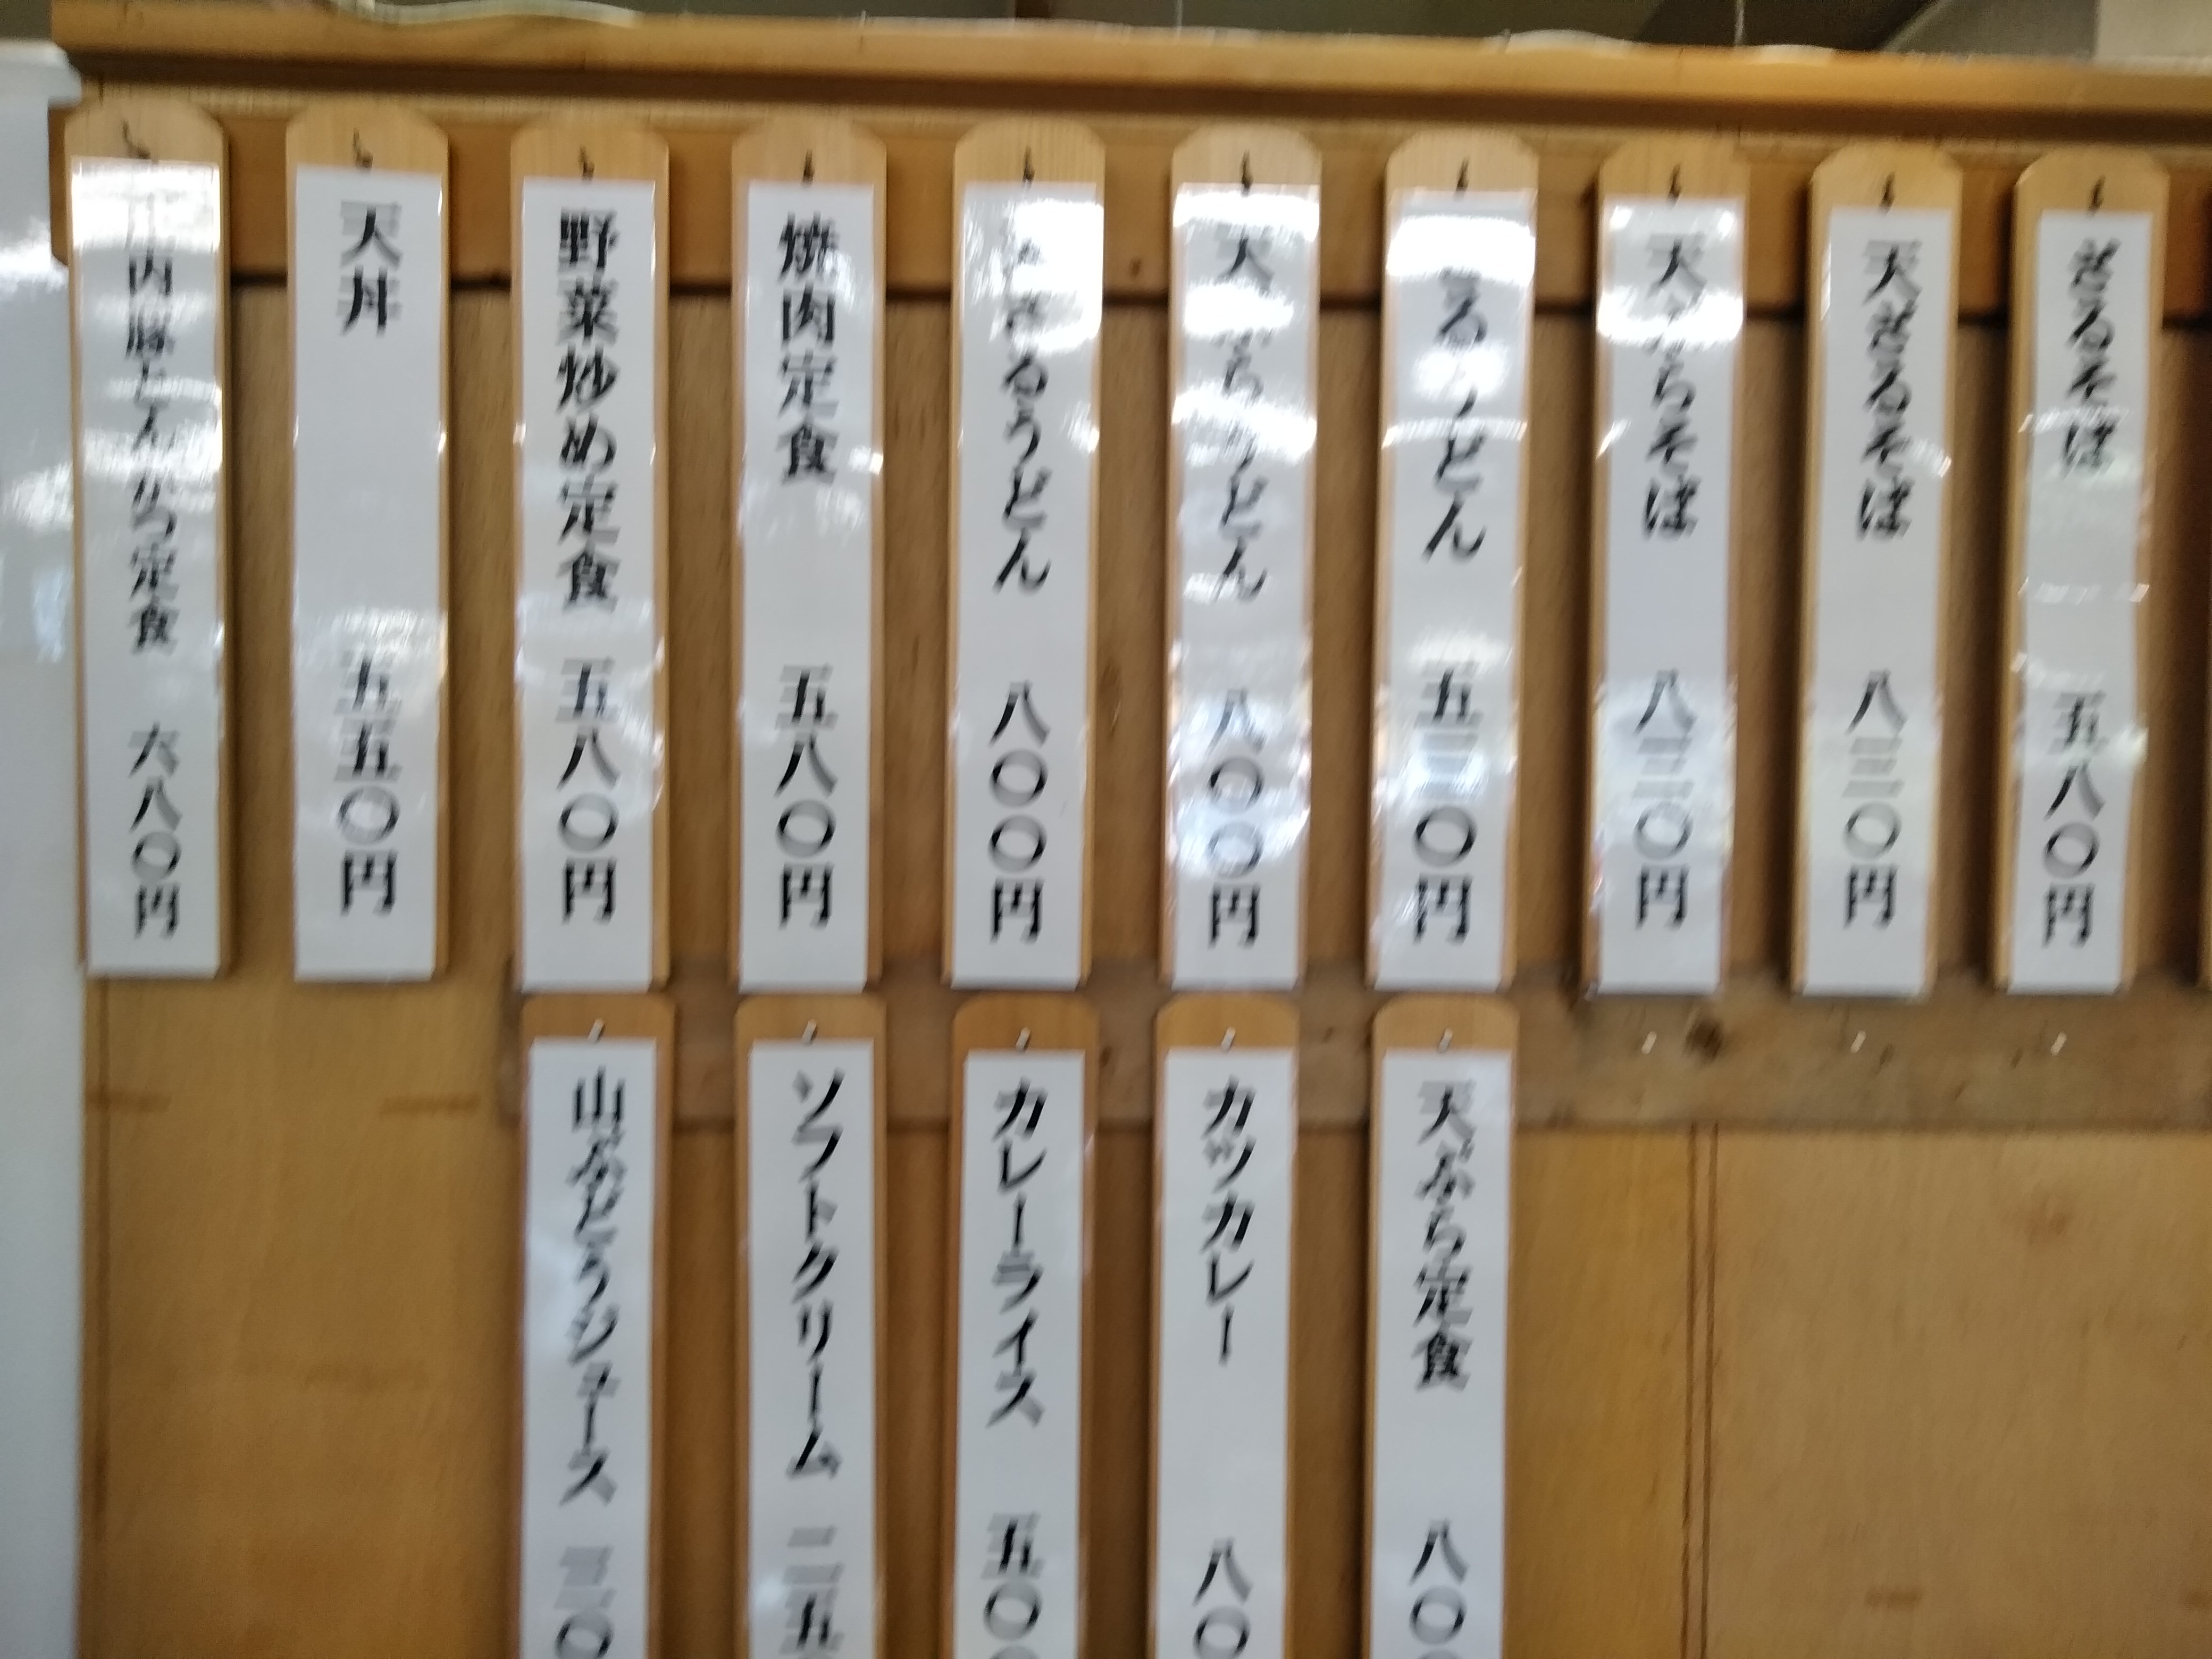 ざるそば 五八〇円
天ざるそば 八三〇円
天ぷらそば 八三〇円
るうどん 五三〇円
天ぷらうどん 八〇〇円
ざるうどん 八〇〇円
焼肉定食 五八〇円
野菜炒め定食 五八〇円
天丼 五五〇円
内豚とんかつ定食 六八〇円
天ぷら定食 八〇
カツカレー 八〇
カレーライス 五〇
ソフトクリーム 二五
山ぶどうジュース 三〇